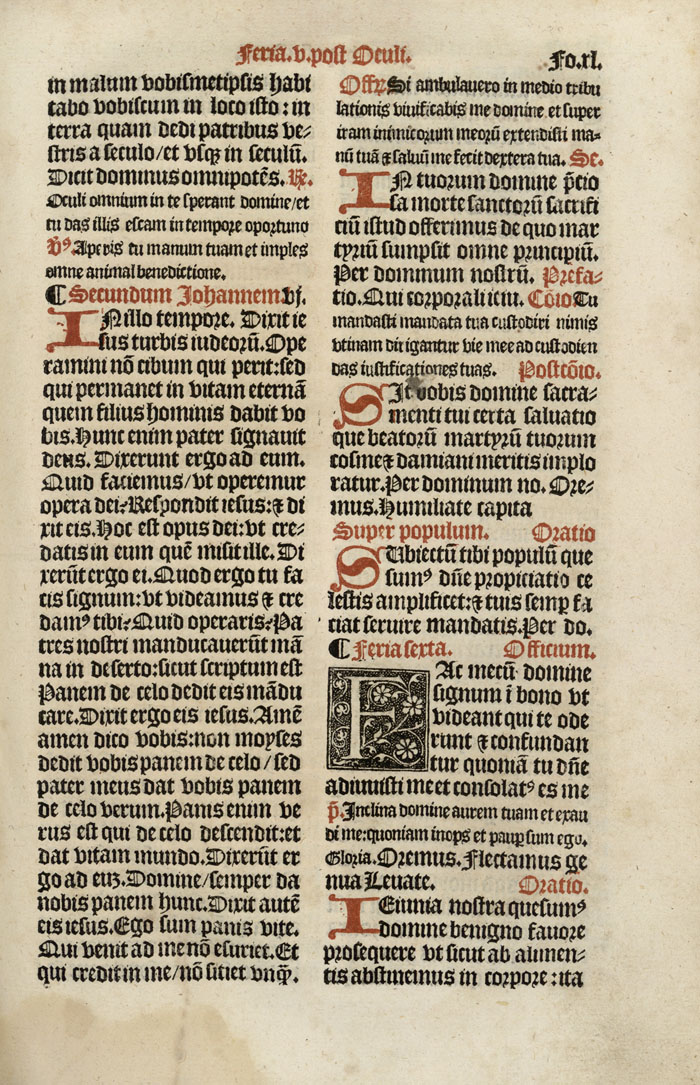 Feria.v.post Oculi.
Fo.xl.
in malum vobismetipsis habi
tabo vobiscum in loco isto: in
terra quam dedi patribus ve⸗
stris a seculo/et vsqꝫ in seculū.
Dicit dominus omnipotēs. ℟.
Oculi omnium in te sperant domine/et
tu das illis escam in tempore oportuno
℣ꝰ Aperis tu manum tuam et imples
omne animal benedictione.
¶ Secundum Johannem vj.
IN illo tempore. Dixit ie
sus turbis iudeorū. Ope
ramini nō cibum qui perit: sed
qui permanet in vitam eternā
quem filius hominis dabit vo
bis. Hunc enim pater signauit
deus. Dixerunt ergo ad eum.
Quid faciemus/vt operemur
opera dei? Respondit iesus: ⁊ di
xit eis. Hoc est opus dei: vt cre⸗
datis in eum quē misit ille. Di
xerūt ergo ei. Quod ergo tu fa
cis signum: vt videamus ⁊ cre
damꝰ tibi? Quid operaris? Pa
tres nostri manducauerūt mā
na in deserto: sicut scriptum est
Panem de celo dedit eis mādu
care. Dixit ergo eis iesus. Amē
amen dico vobis: non moyses
dedit vobis panem de celo/sed
pater meus dat vobis panem
de celo verum. Panis enim ve
rus est qui de celo descendit: et
dat vitam mundo. Dixerūt er
go ad euꝫ. Domine/semper da
nobis panem hunc. Dixit autē
eis iesus. Ego sum panis vite.
Qui venit ad me nō esuriet. Et
qui credit in me/nō sitiet vnꝙ̄.
Offꝝ Si ambulauero in medio tribu
lationis viuificabis me domine et super
iram inimicorum meorū extendisti ma⸗
nū tuā ⁊ saluū me fecit dextera tua. Se.
IN tuorum domine p̄cio
sa morte sanctorū sacrifi
ciū istud offerimus de quo mar
tyriū sumpsit omne principiū.
Per dominum nostrū. Prefa⸗
tio. Qui corporali ieiu. Cōio Tu
mandasti mandata tua custodiri nimis
vtinam dirigantur vie mee ad custodien
das iustificationes tuas. Postcōio.
SIt vobis domine sacra⸗
menti tui certa saluatio
que beatorū martyrū tuorum
cosme ⁊ damiani meritis implo
ratur. Per dominum no. Ore⸗
mus. Humiliate capita
Super populum. Oratio
SUbiectū tibi populū que
sumꝰ dn̄e propiciatio ce
lestis amplificet: ⁊ tuis semꝑ fa
ciat seruire mandatis. Per do.
¶ Feria sexta. Officium.
FAc mecū domine
signum ī bono vt
videant qui te ode
runt ⁊ confundan
tur quoniā tu dn̄e
adiuuisti me et consolatꝰ es me
p̄. Inclina domine aurem tuam et exau
di me: quoniam inops et pauꝑ sum ego.
Gloria. Oremus. Flectamus ge
nua Leuate. Oratio.
IEiunia nostra quesumꝰ
domine benigno fauore
prosequere vt sicut ab alimen⸗
tis abstinemus in corpore: ita